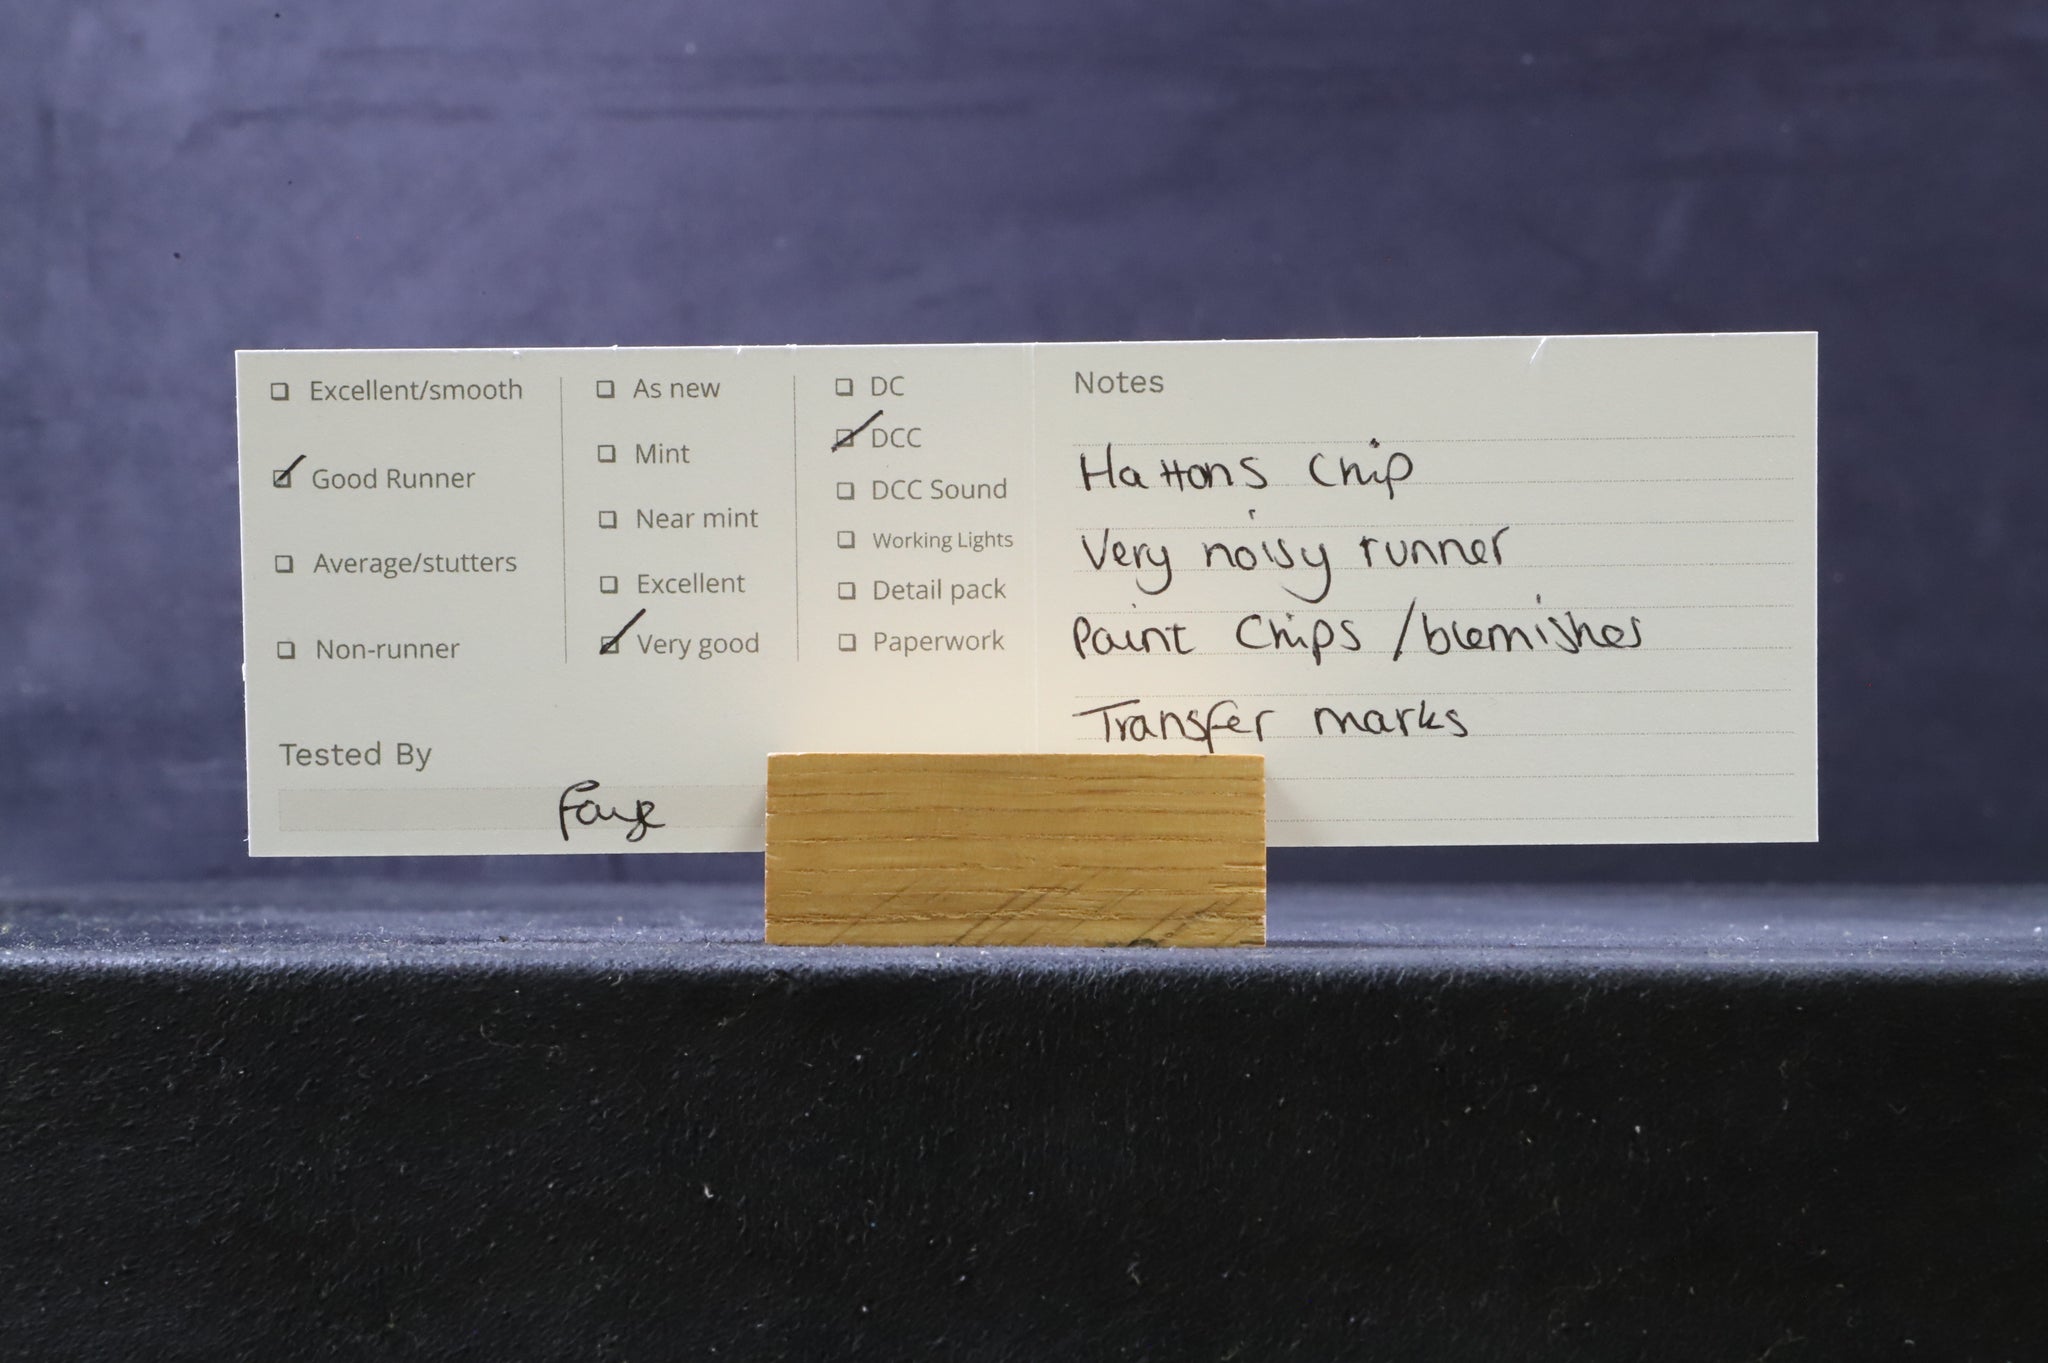 ☐ Excellent/smooth
☑ Good Runner
☐ Average/stutters
☐ Non-runner
☐ As new
☐ Mint
☐ Near mint
☐ Excellent
☑ Very good
☐ DC
☑ DCC
☐ DCC Sound
☐ Working Lights
☐ Detail pack
☐ Paperwork
Tested By
Faye
Notes
Hattons Chip
Very noisy runner
Paint Chips / blemishes
Transfer marks